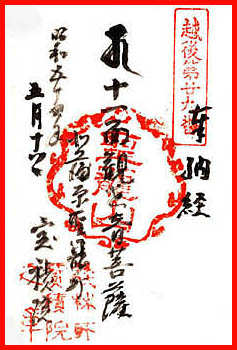 越後第廿九番
奉納経
十一面観世音菩薩
北蒲原聖籠山
宝積院
昭和五十
五月十
寶積院